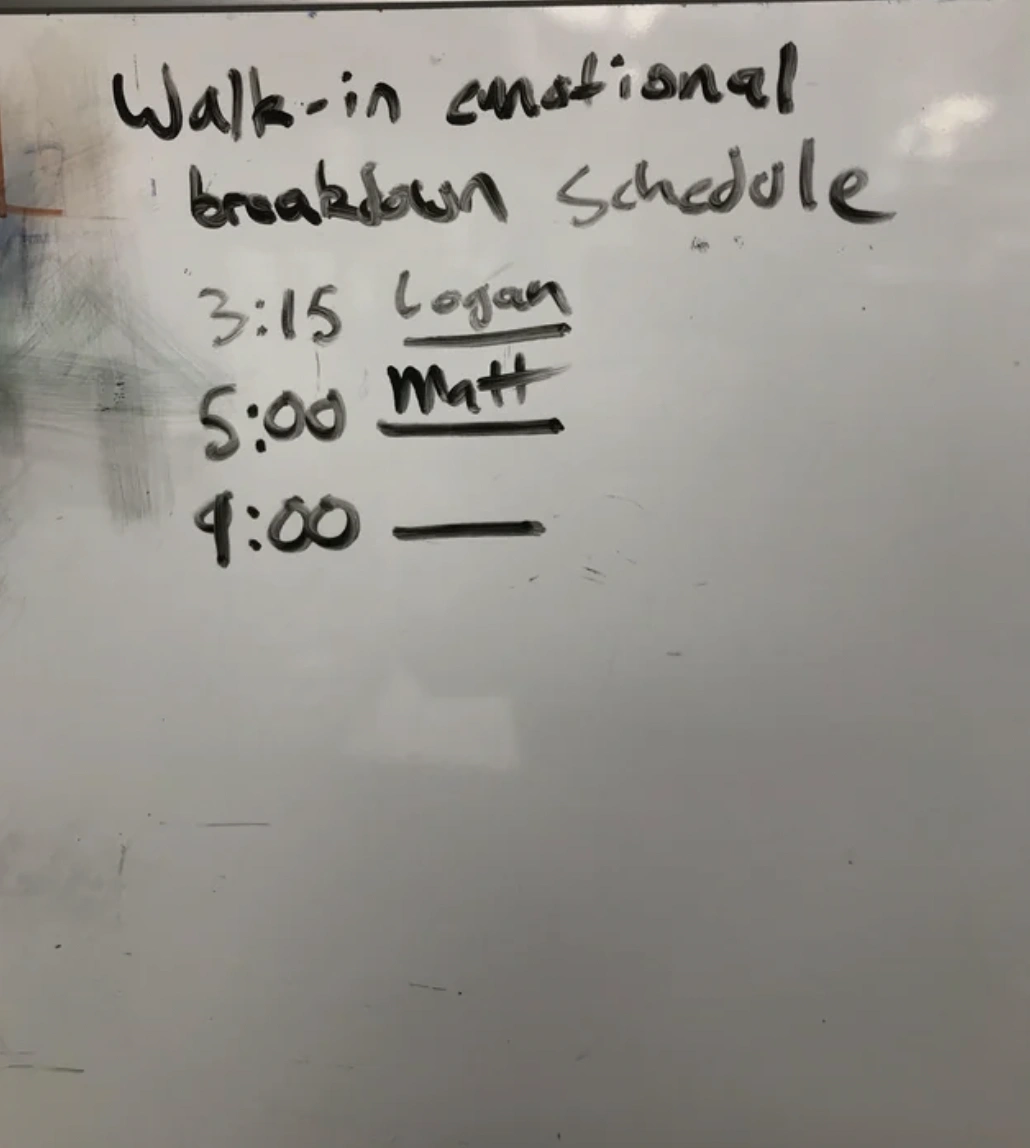 Walk-in emotional
breakdown schedule
3:15 Logan
5:00 Matt
9:00